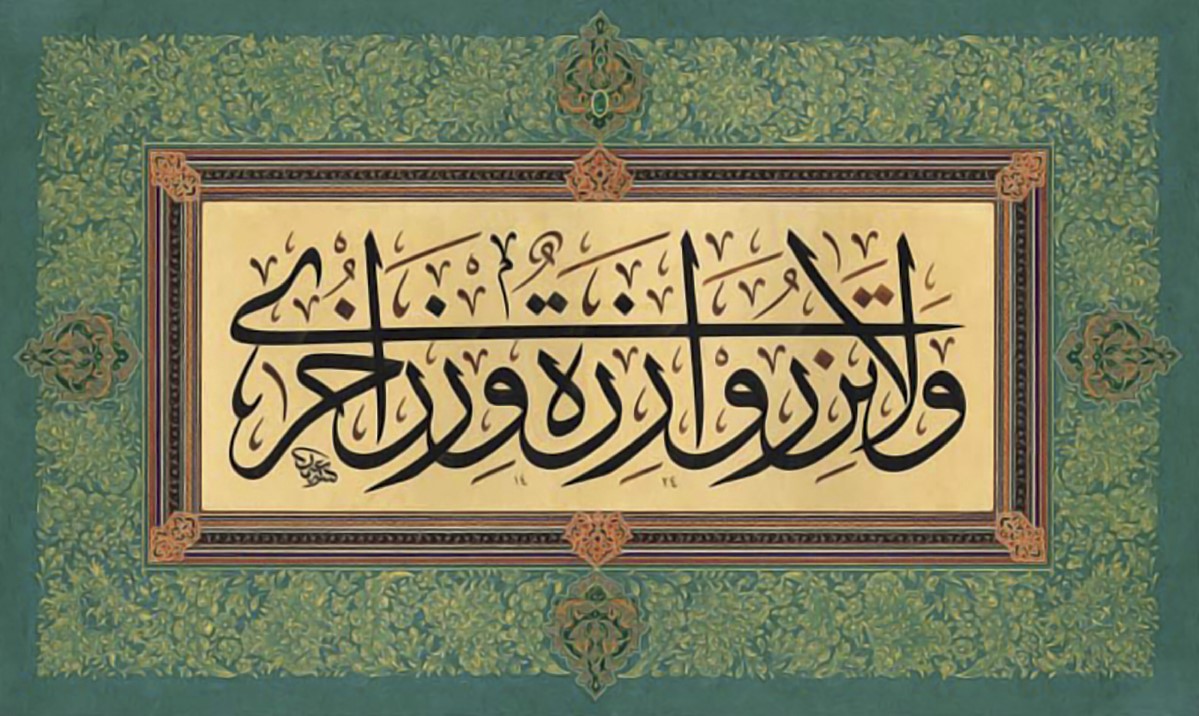 وَلَا تَزِرُ وَازِرَةٌ وِزْرَ أُخْرَىٰ
١٤ ٢٤